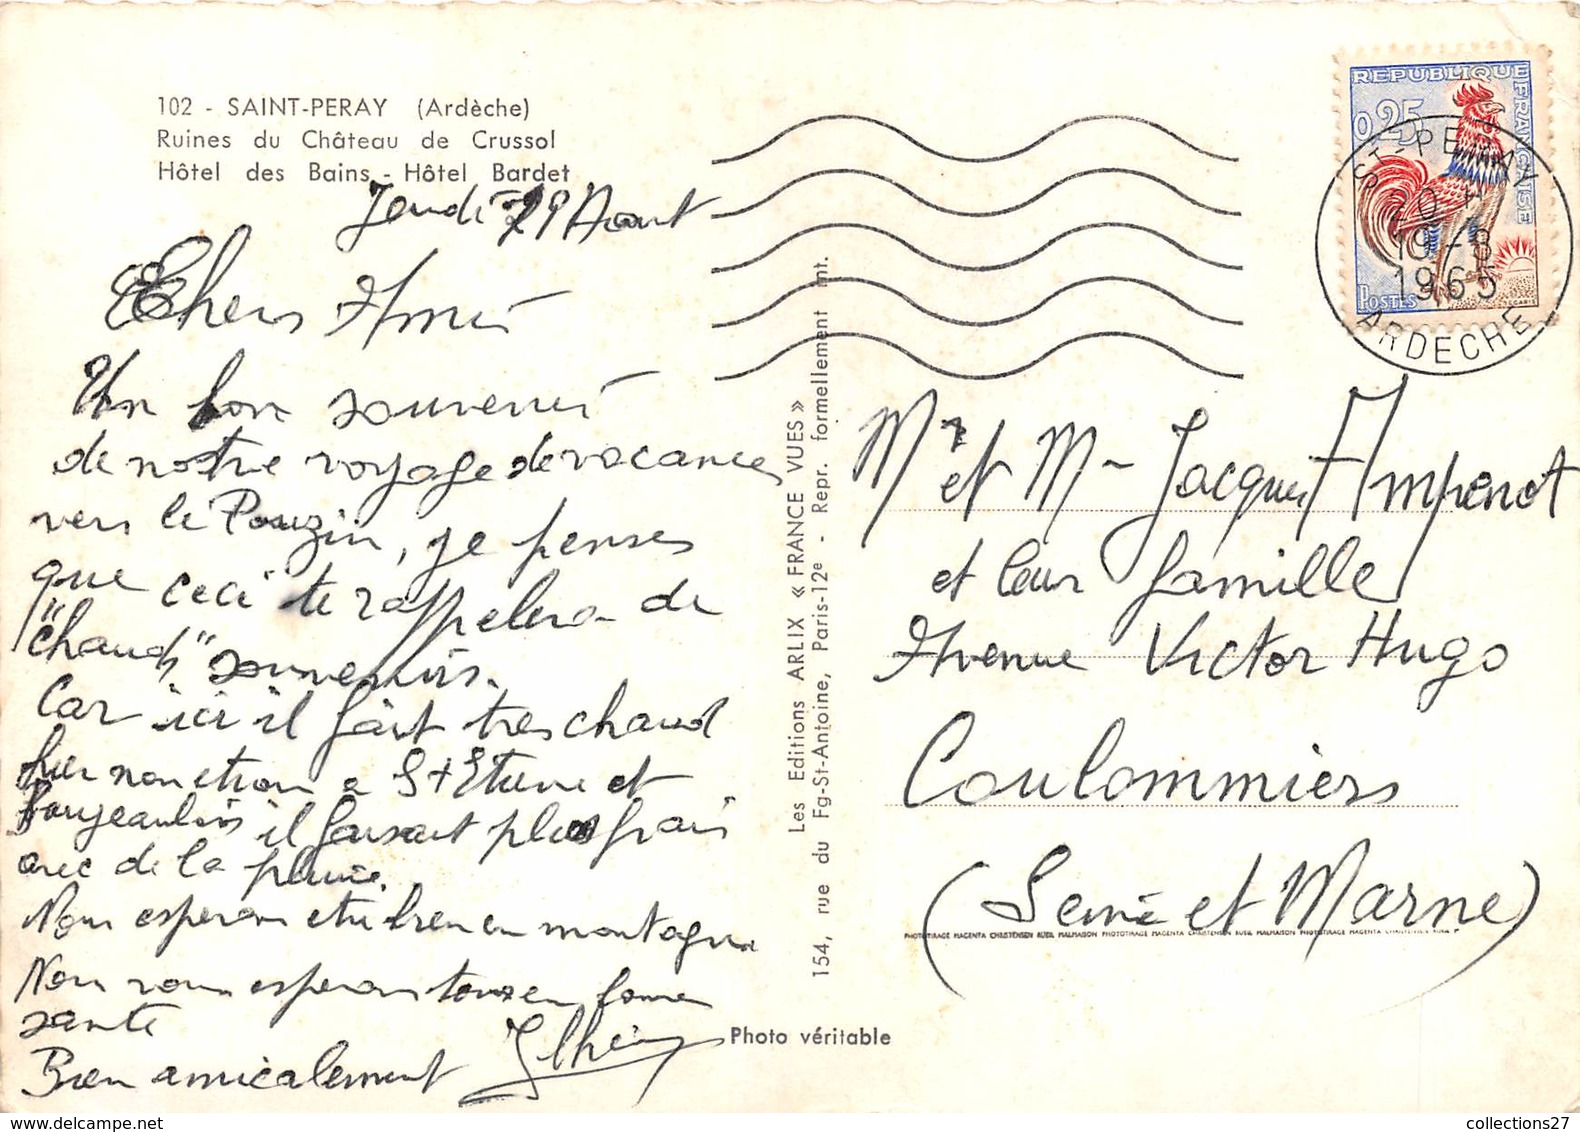 102 - SAINT-PERAY (Ardèche)
Ruines du Château de Crussol
Hôtel des Bains - Hôtel Bardet
Jeudi 19 Aout
Chers Amis
Un bon souvenir
de notre voyage de vacances
vers le Pouzin, je penses
que ceci te rappelera de
"chauds" souvenirs.
Car ici il fait tres chaud
hier nous etions a St Etienne et
il faisait plus frais
avec de la pluie.
Nous esperons etre bien en montagne
Nous vous esperons tous en bonne
sante
Bien amicalement
REPUBLIQUE FRANÇAISE
0,25
POSTES
ST-PERAY
20 H
19-8
1965
ARDECHE
Mr et Mme Jacques Ampenot
et leur famille
Avenue Victor Hugo
Coulommiers
(Seine et Marne)
Les Editions ARLIX « FRANCE VUES »
154, rue du Fg-St-Antoine, Paris-12e - Repr. formellement int.
PHOTOTIRAGE MAGENTA CHRISTENSEN RUEIL MALMAISON PHOTOTIRAGE MAGENTA CHRISTENSEN RUEIL MALMAISON PHOTOTIRAGE MAGENTA CHRISTENSEN RUEIL
Photo véritable
collections27